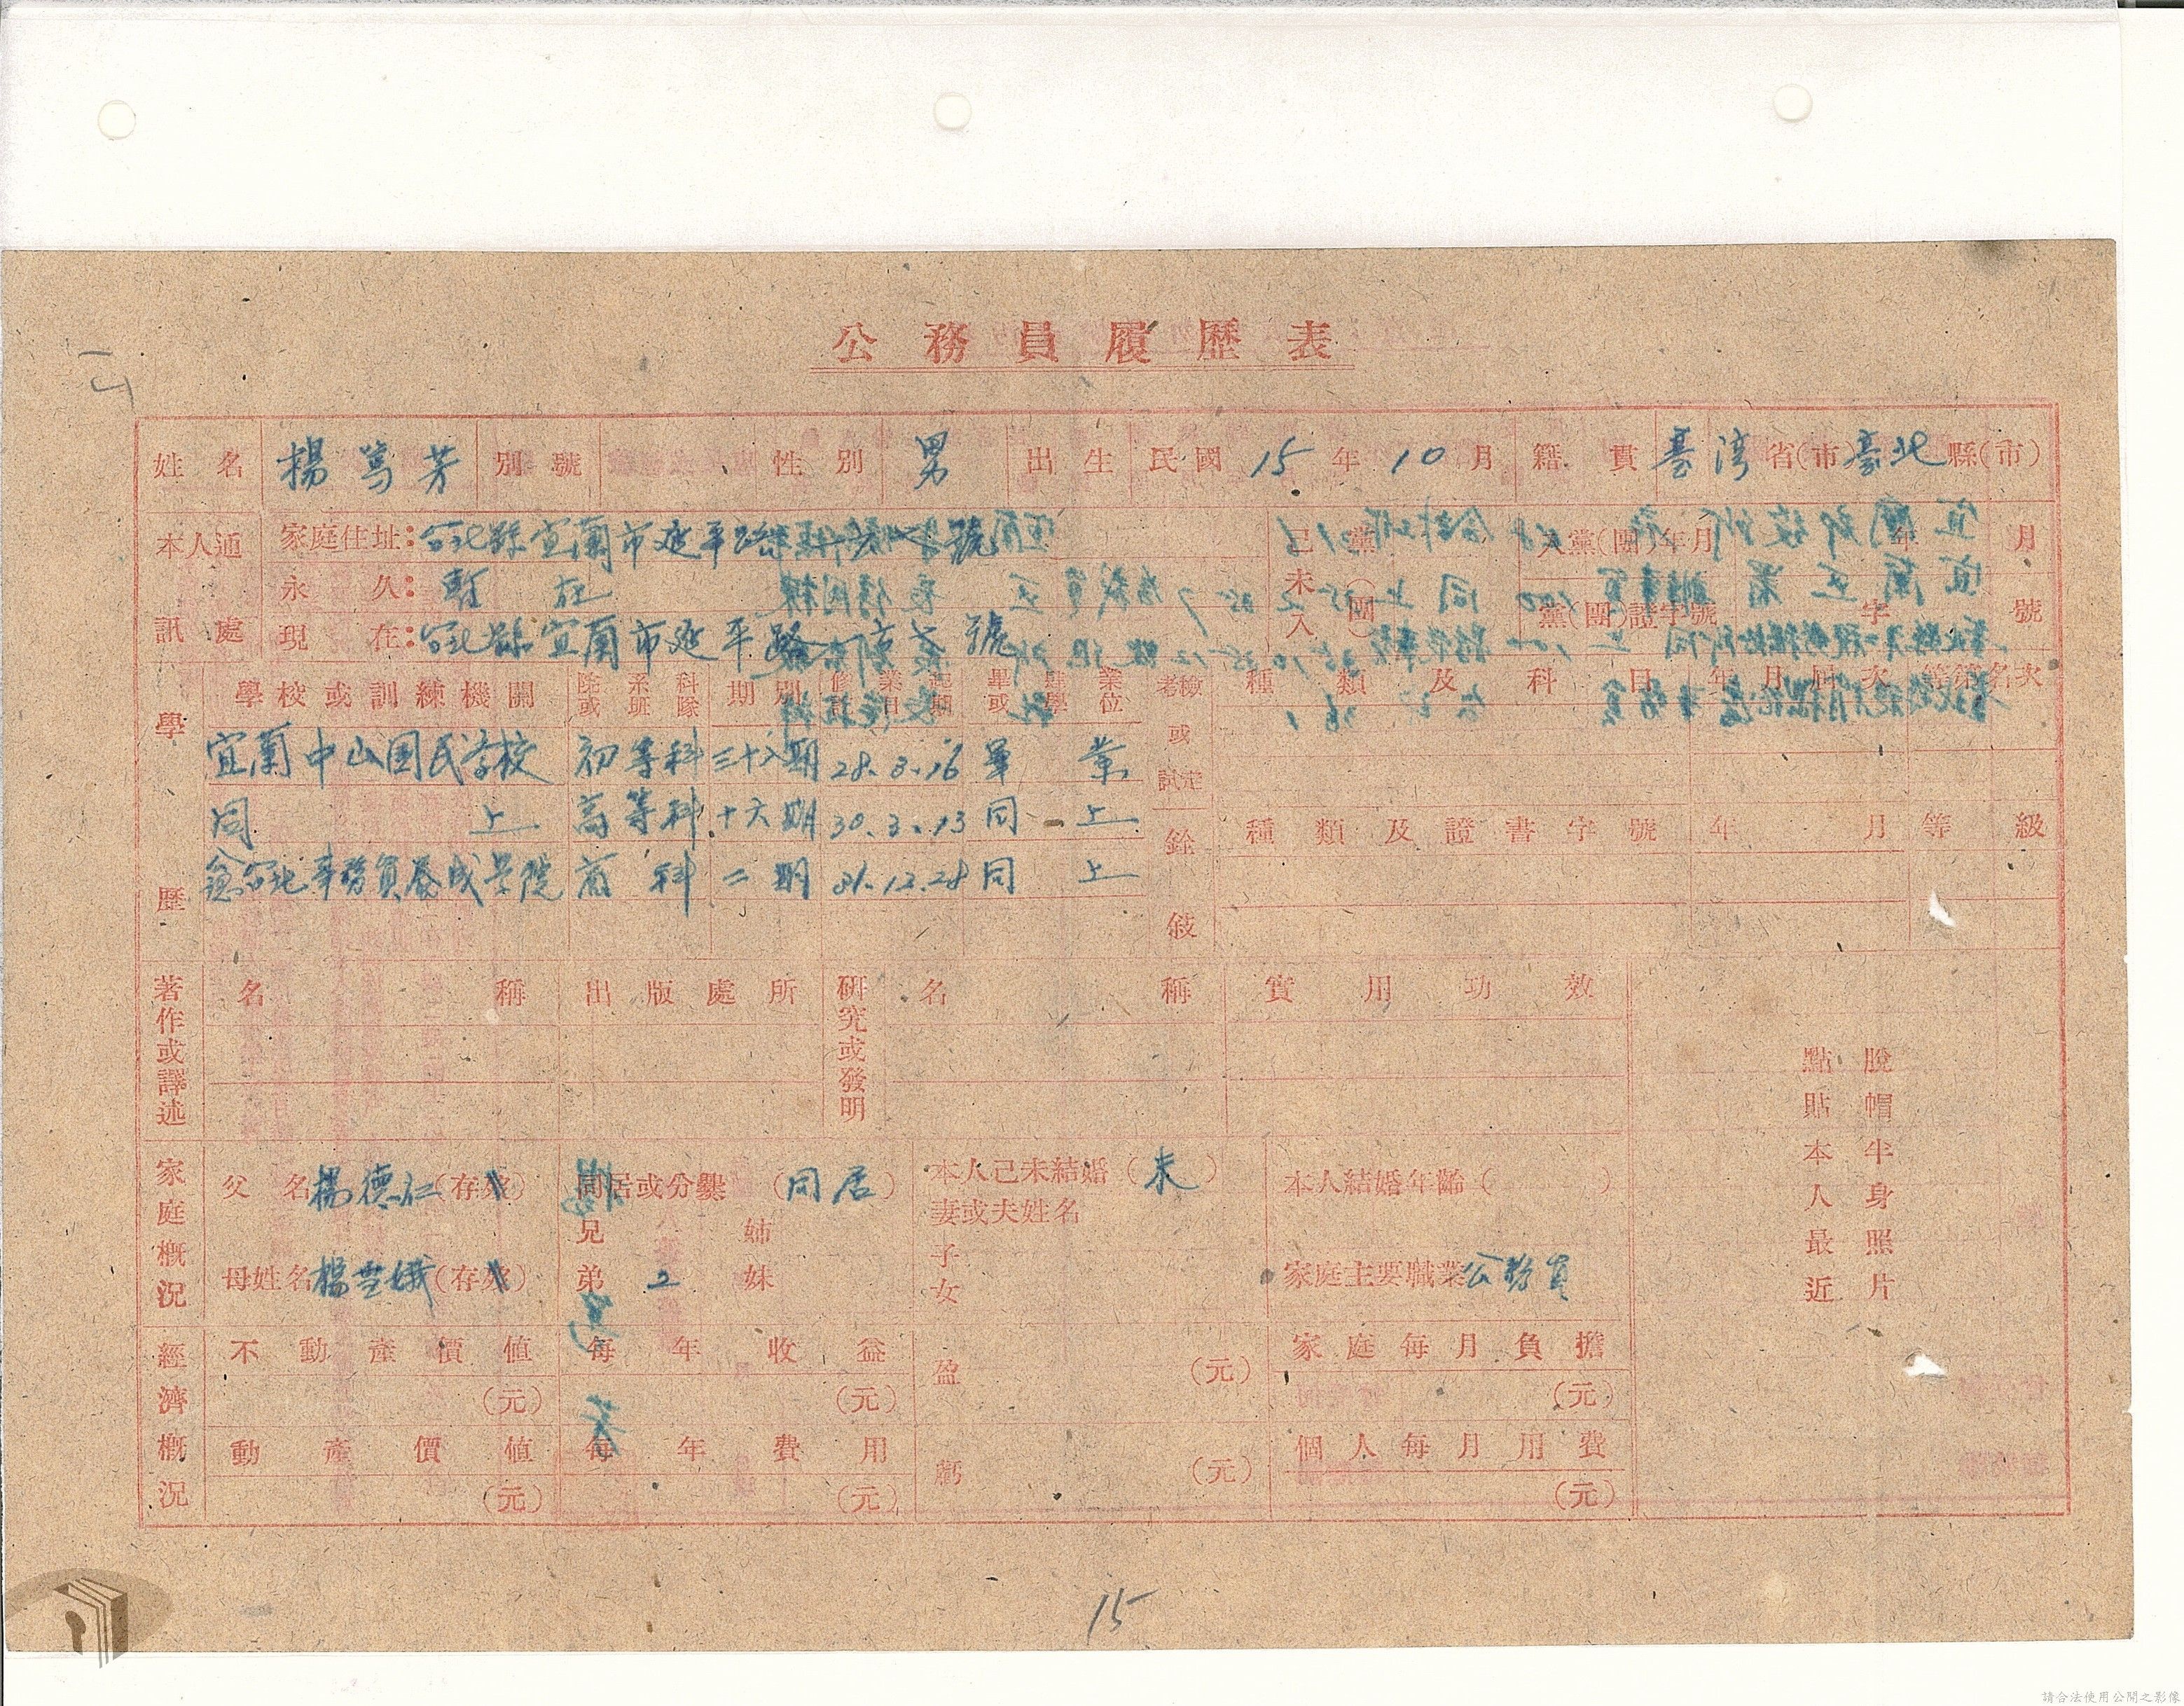 公務員履歷表
姓名 楊篤芳 別號 性別 男 出生 民國 15年10月 籍貫 臺灣省(市)臺北縣(市)
本人通訊處
家庭住址：台北縣宜蘭市延平路 號
永久：暫在
現在：台北縣宜蘭市延平路 號
已未入黨(團) 入黨(團)年月 年 月
黨(團)證字號 字 號
學歷
學校或訓練機關 院系科或班隊 期別 畢或肄業學位
宜蘭中山国民学校 初等科 三十八期 28.3.16 畢業
同上 高等科 十六期 30.3.13 同上
台北事務員養成学院 商科 二期 31.12.28 同上
考檢或試定 種類及科目 年月屆次 等第名次
銓敍 種類及證書字號 年月 等級
著作或譯述 名稱 出版處所
研究或發明 名稱 實用功效
脫帽半身照片
點貼本人最近
家庭概況
父名楊德仁(存歿) 同居或分爨(同居) 本人已未結婚(未) 本人結婚年齡( )
妻或夫姓名
母姓名楊 (存歿) 兄弟 2 姊妹 子女 家庭主要職業公務員
經濟概況
不動產價值 (元) 每年收益 (元) 盈 (元) 家庭每月負擔 (元)
動產價值 (元) 每年費用 (元) 虧 (元) 個人每月用費 (元)
15
請合法使用公開之影像